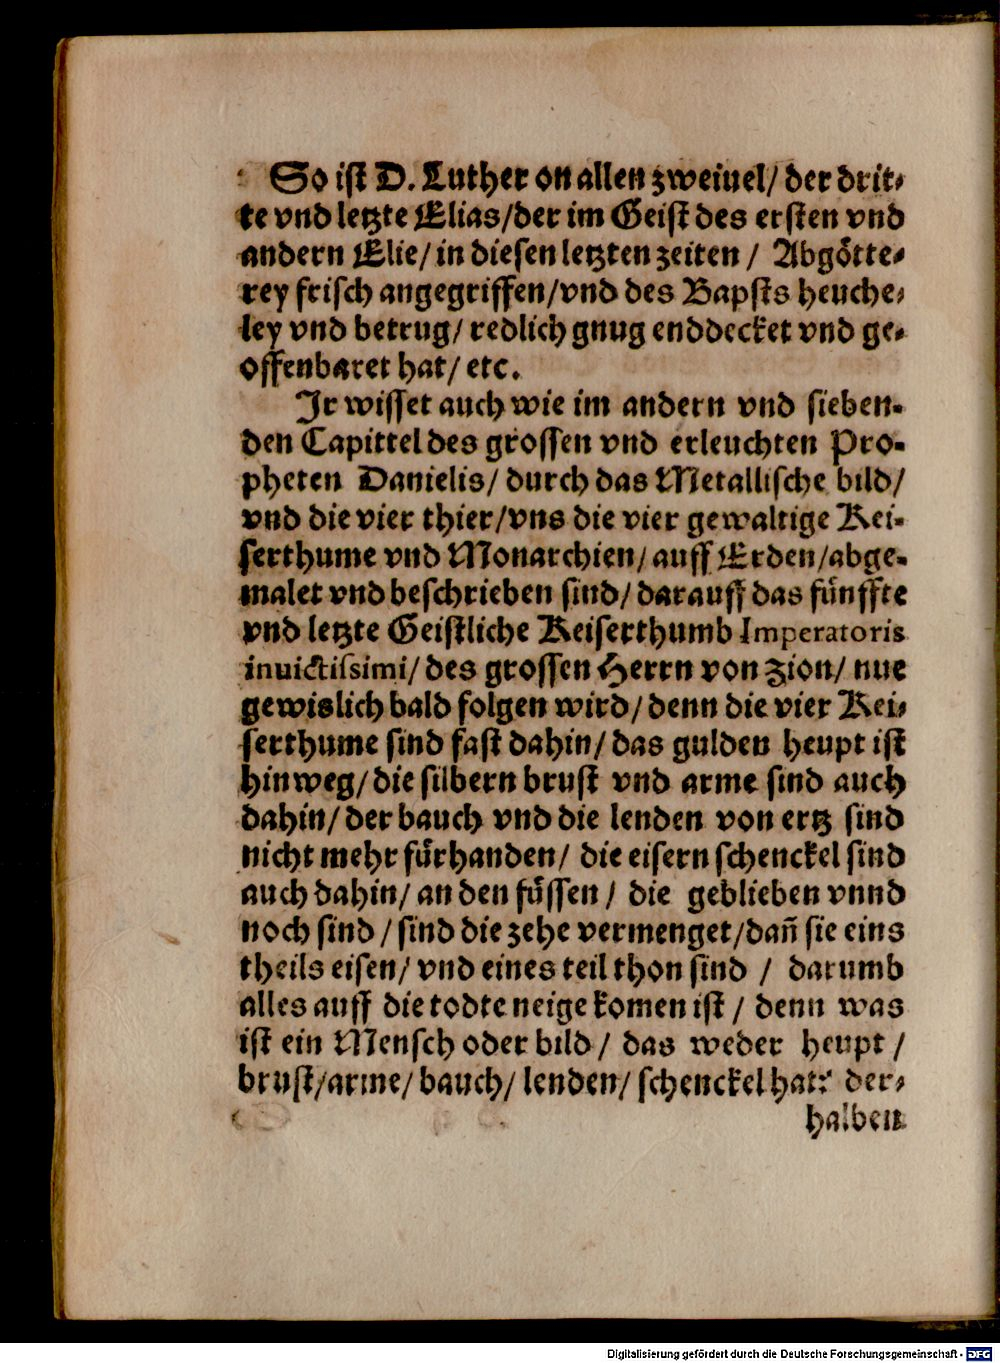 So ist D. Luther on allen zweiuel/ der drit-
te vnd letzte Elias/der im Geist des ersten vnd
andern Elie/ in diesen letzten zeiten / Abgötte-
rey frisch angegriffen/vnd des Bapsts heuche-
ley vnd betrug/ redlich gnug enddecket vnd ge-
offenbaret hat/ etc.
Jr wisset auch wie im andern vnd sieben-
den Capittel des grossen vnd erleuchten Pro-
pheten Danielis/ durch das Metallische bild/
vnd die vier thier/vns die vier gewaltige Kei-
serthume vnd Monarchien/ auff Erden/abge-
malet vnd beschrieben sind/ darauff das fünffte
vnd letzte Geistliche Keiserthumb Imperatoris
inuictissimi/ des grossen Herrn von Zion/ nue
gewislich bald folgen wird/ denn die vier Kei-
serthume sind fast dahin/ das gulden heupt ist
hinweg/ die silbern brust vnd arme sind auch
dahin/ der bauch vnd die lenden von ertz sind
nicht mehr fürhanden/ die eisern schenckel sind
auch dahin/ an den füssen / die geblieben vnnd
noch sind / sind die zehe vermenget/dañ sie eins
theils eisen/ vnd eines teil thon sind / darumb
alles auff die todte neige komen ist / denn was
ist ein Mensch oder bild / das weder heupt /
brust/arme/ bauch/ lenden/ schenckel hat? der-
halben
Digitalisierung gefördert durch die Deutsche Forschungsgemeinschaft - DFG